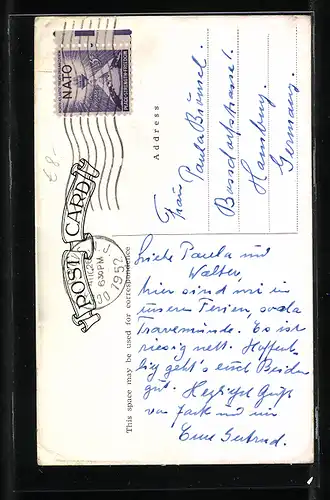 NATO
£8-
POST CARD
6 30 PM
1952
This space may be used for correspondence
Address
Frau Paula Brümsel.
Hamburg.
Germany.
Liebe Paula und
Walter,
hier sind wir in
unseren Ferien, so à la
Travemünde. Es ist
riesig nett. Hoffent-
lich geht's euch Beiden
gut. Herzlichst Grüße
von Jack und
Eure Gertrud.